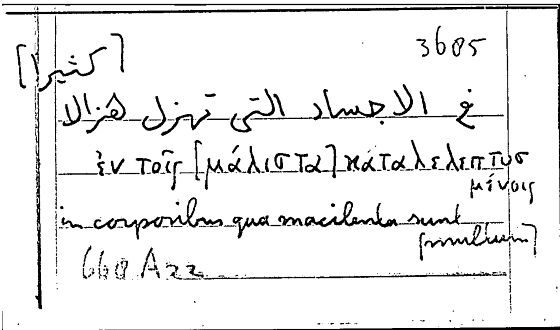 3685
[كثيرا]
في الاجساد التى تهزل هزالا
ἐν τοῖς [μάλιστα] καταλελεπτυσ
μένοις
in corporibus qua macilenta sunt
[multum]
668 A 22